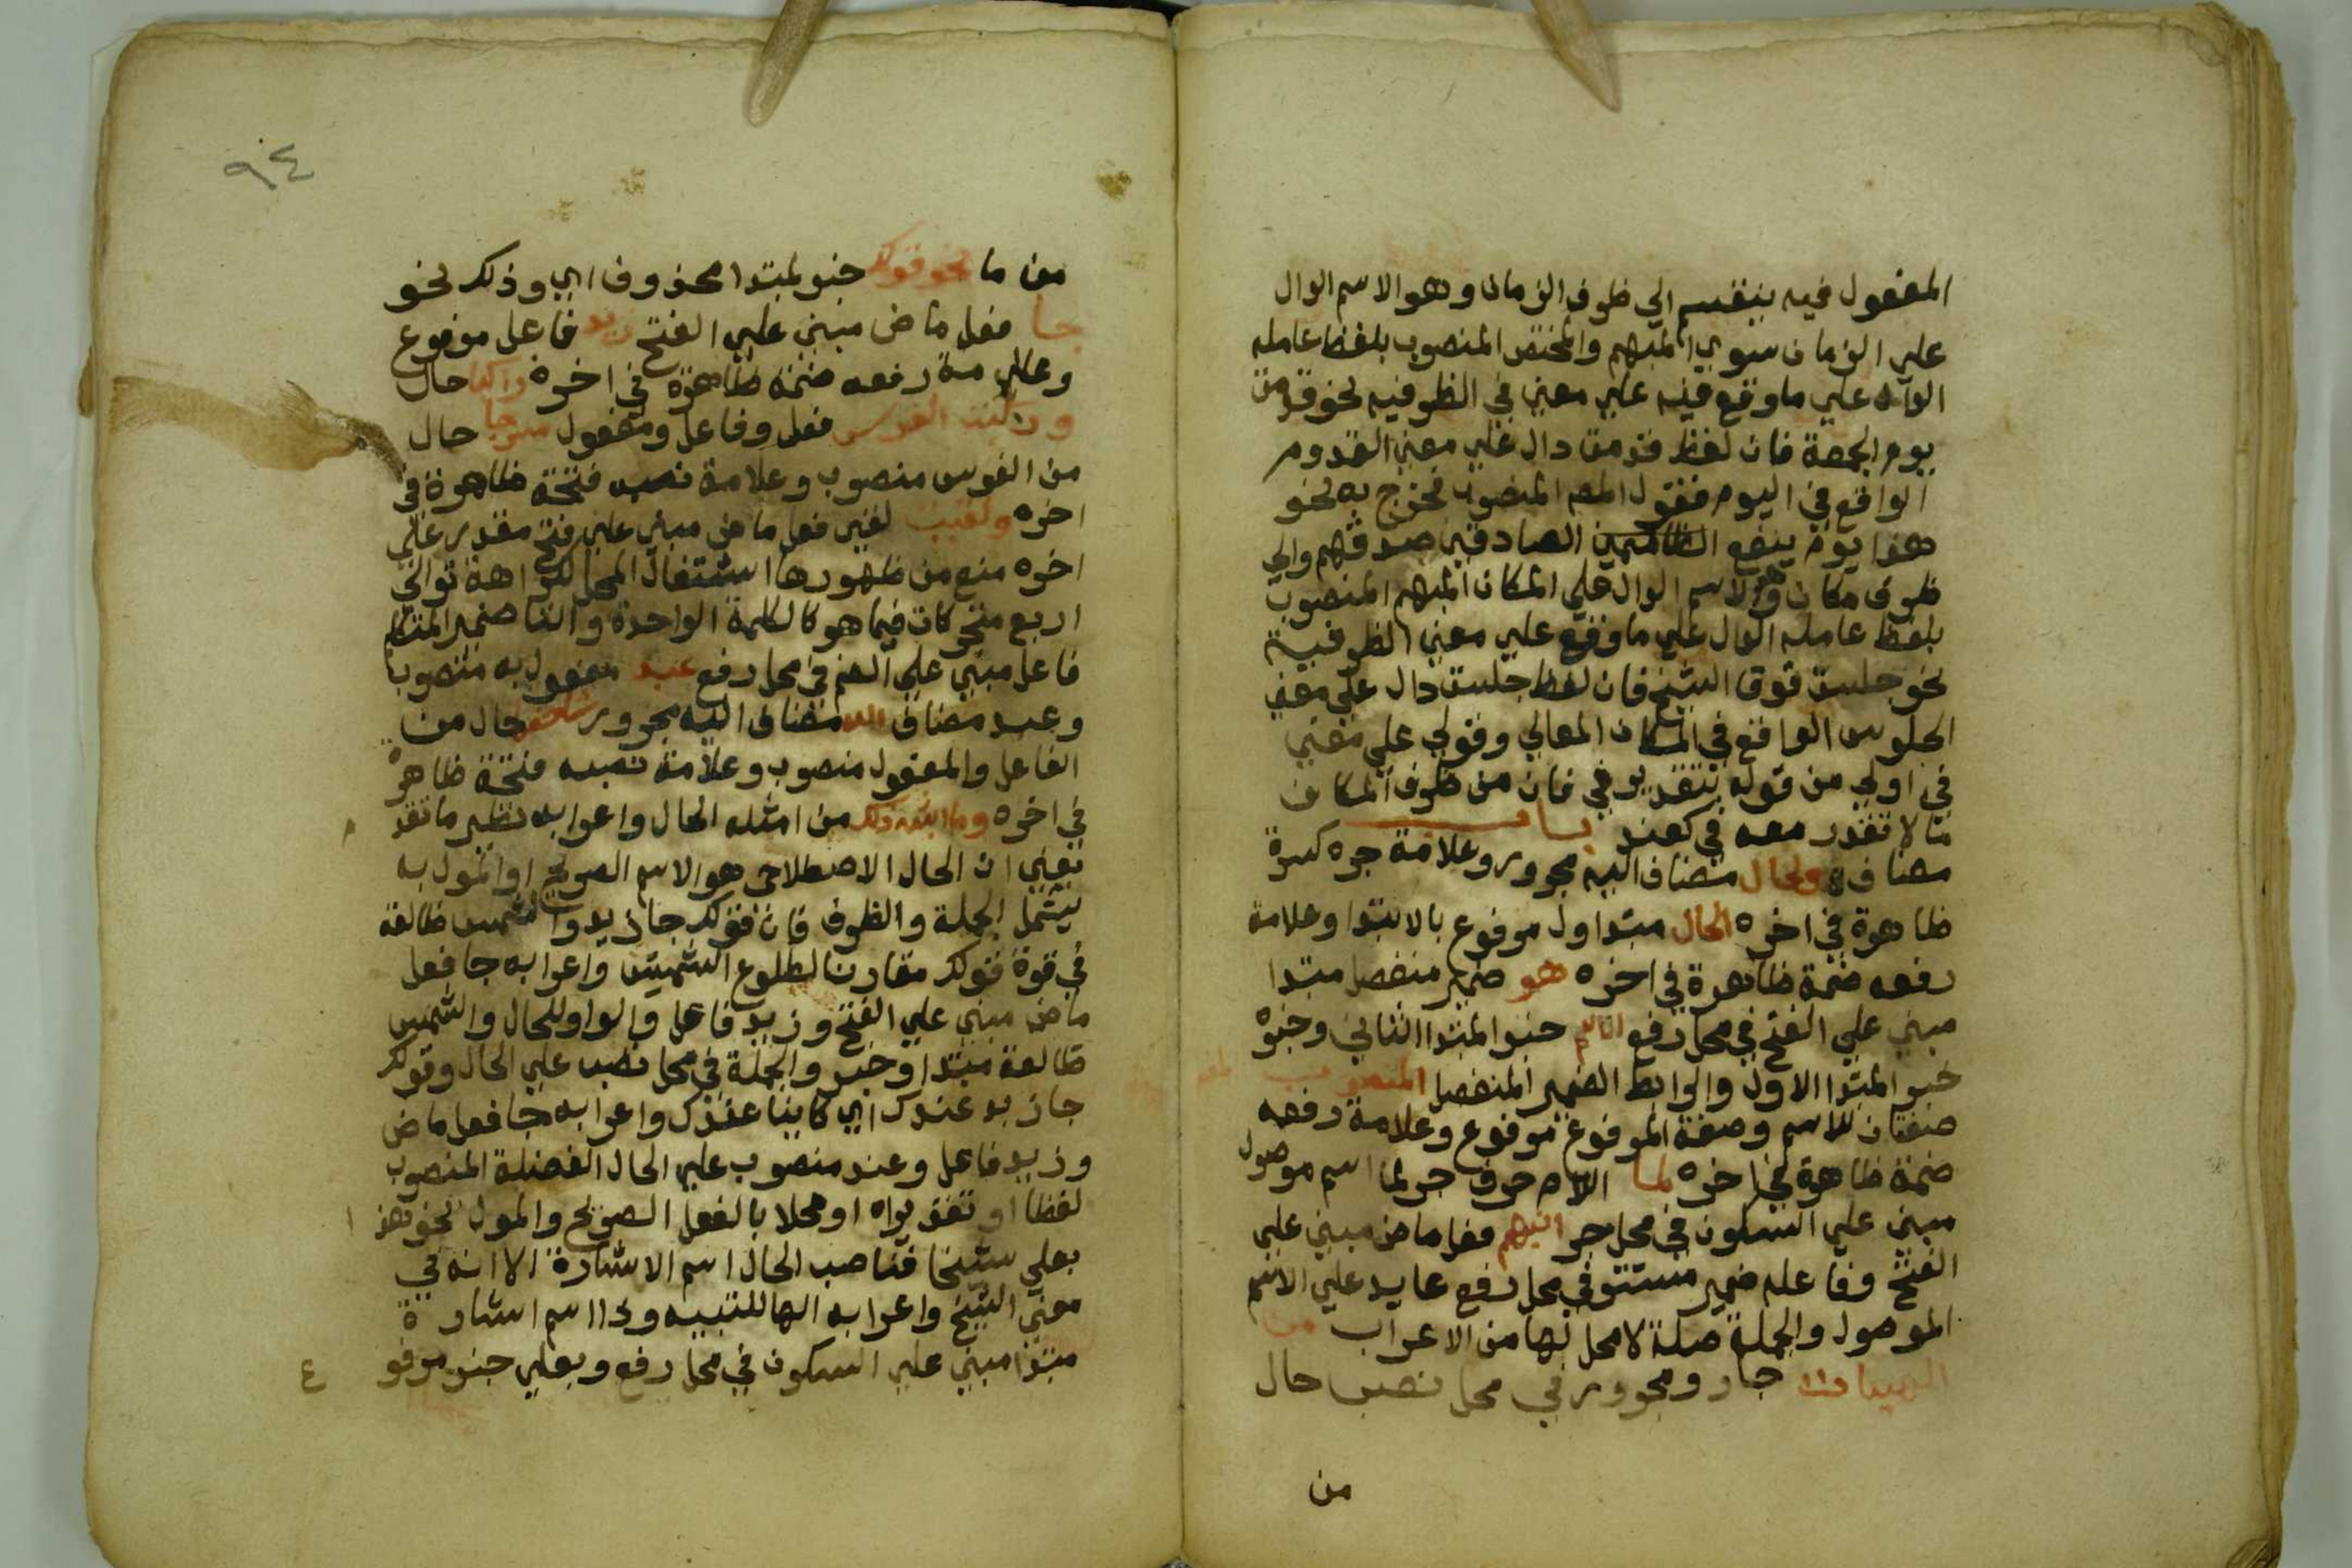 المفعول فيه ينقسم الي ظرف الزمان وهو الاسم الدال
علي الزمان سوي المبهم والمختص المنصوب بلفظ عامله
الدال علي ما وقع فيه علي معني في الظرفيه نحو قدمت
يوم الجمعة فان لفظ قدمت دال علي معني القدوم
الواقع في اليوم فقول المص المنصوب مخرج به نحو
هذا يوم ينفع الصادقين صدقهم والي
ظرف مكان وهو الاسم الدال علي المكان المبهم المنصوب
بلفظ عامله الدال علي ما وقع علي معني الظرفية
نحو جلست فوق الشيخ فان لفظ جلست دال علي معني
الجلوس الواقع في المكان المعالي وقولي علي معني
في اولي من قوله بتقدير في فان من ظرف المكان
ما لا تقدر معه في كعند باب
مضاف والحال مضاف اليه مجرور وعلامة جره كسرة
ظاهرة في اخره الحال مبتدا اول مرفوع بالابتدا وعلامة
رفعه ضمة ظاهرة في اخره هو ضمير منفصل مبتدا
مبني علي الفتح في محل رفع الاسم خبر المبتدا الثاني وخبره
خبر المبتدا الاول والرابط الضمير المنفصل المنصوب
صفتان للاسم وصفة المرفوع مرفوع وعلامة رفعه
ضمة ظاهرة في اخره لما اللام حرف جر لما اسم موصول
مبني علي السكون في محل جر انبهم فعل ماض مبني علي
الفتح وفاعله ضمير مستتر في محل رفع عايد علي الاسم
الموصول والجملة صلة لا محل لها من الاعراب من
الهييات جار ومجرور في محل نصب حال
من
٩٤
من ما نحو قولك خبر لمبتدا محذوف اي وذلك نحو
جا فعل ماض مبني علي الفتح زيد فاعل مرفوع
وعلامة رفعه ضمة ظاهرة في اخره راكبا حال
وركبت الفرس فعل وفاعل ومفعول مسرجا حال
من الفرس منصوب وعلامة نصبه فتحة ظاهرة في
اخره ولقيت لقي فعل ماض مبني علي فتح مقدر علي
اخره منع من ظهورها اشتغال المحل لكراهة توالي
اربع متحركات فيما هو كالكلمة الواحدة والتا ضمير المتكلم
فاعل مبني علي الضم في محل رفع عبد مفعول به منصوب
وعبد مضاف الله مضاف اليه مجرور حال من
الفاعل والمفعول منصوب وعلامة نصبه فتحة ظاهرة
في اخره وما اشبه ذلك من امثله الحال واعرابه نظير ما تقدم
يعني ان الحال الاصطلاحي هو الاسم الصريح او المول به
يشمل الجملة والظرف فان قولك جا زيد والشمس طالعة
في قوة قولك مقارنا لطلوع الشمس واعرابه جا فعل
ماض مبني علي الفتح وزيد فاعل والواو للحال والشمس
طالعة مبتدا وخبر والجملة في محل نصب علي الحال وقولك
جا زيد عندك اي كاينا عندك واعرابه جا فعل ماض
وزيد فاعل وعند منصوب علي الحال الفضلة المنصوب
لفظا او تقديرا او محلا بالفعل الصريح والمول نحو هذا
بعلي شيخا فناصب الحال اسم الاشارة الا انه في
معني واعرابه الها للتنبيه وذا اسم اشارة
مبتدا مبني علي السكون في محل رفع وبعلي خبر مرفوع